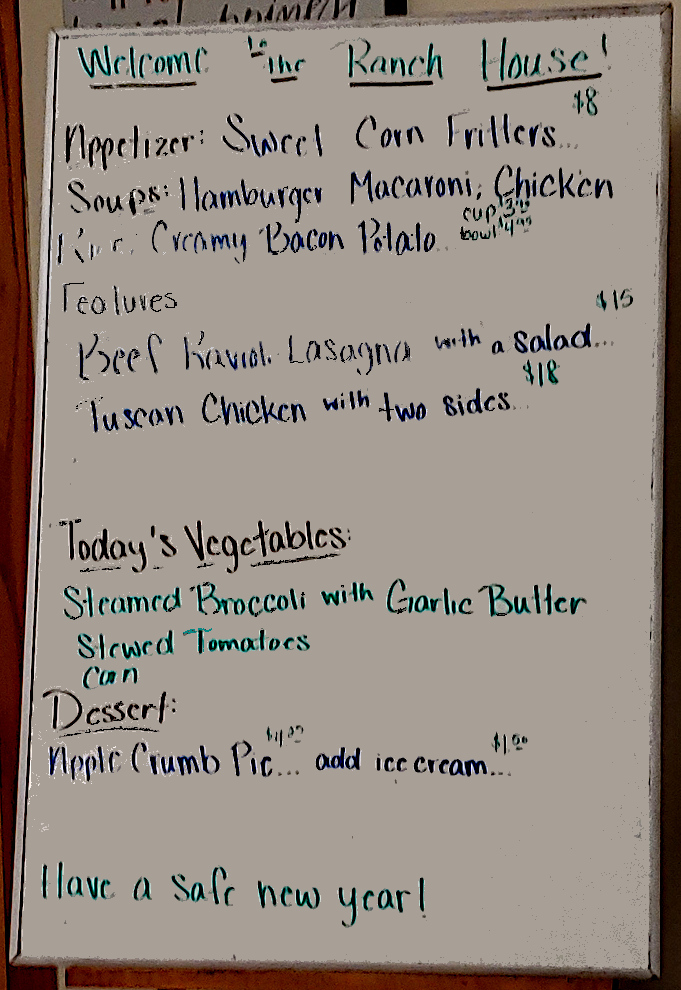 Welcome to the Ranch House!
$8
Appetizer: Sweet Corn Fritters...
Soups: Hamburger Macaroni, Chicken
Creamy Bacon Potato..
cup $3.99
bowl $4.99
Features
$15
Beef Ravioli Lasagna with a salad...
$18
Tuscan Chicken with two sides...
Today's Vegetables:
Steamed Broccoli with Garlic Butter
Stewed Tomatoes
Corn
Dessert:
Apple Crumb Pie... $4.99 add ice cream... $1.00
Have a safe new year!